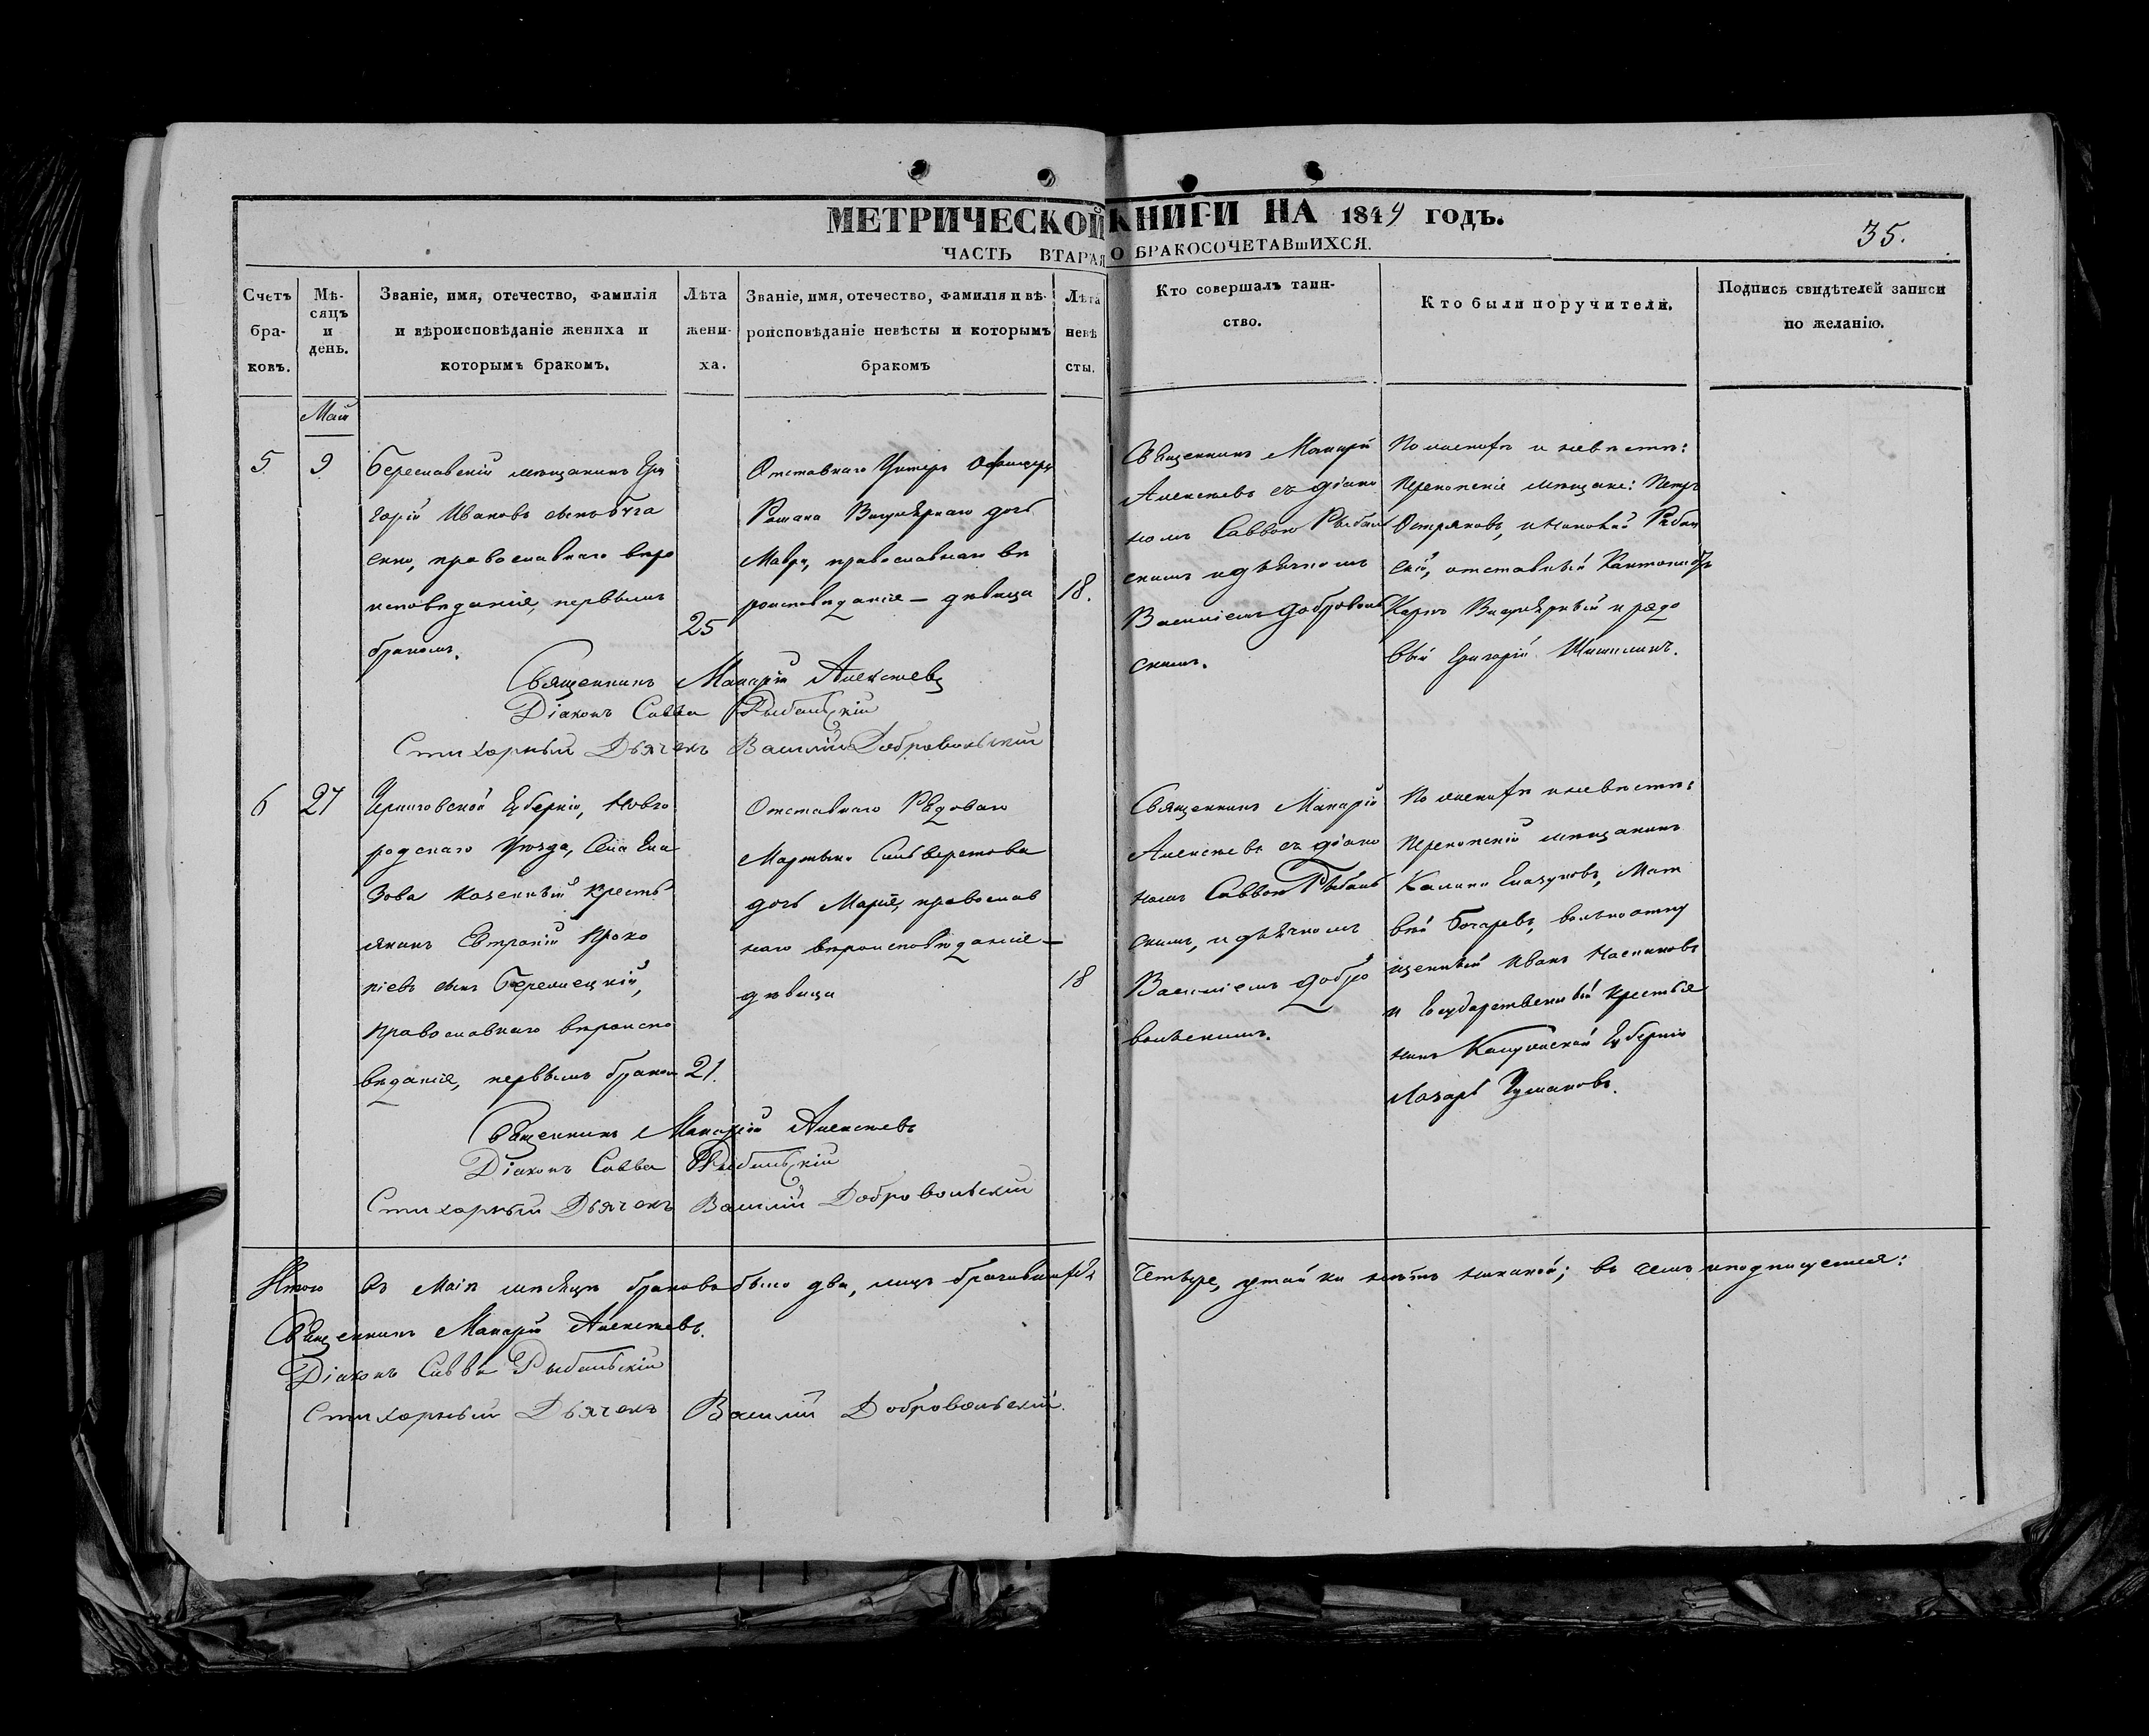 МЕТРИЧЕСКОЙ КНИГИ НА 1849 ГОДЪ.
35.
ЧАСТЬ ВТАРАЯ О БРАКОСОЧЕТАВшИХСЯ.
Счетъ бра- ковъ.
Мѣ- сяцъ и день.
Званіе, имя, отечество, фамилія и вѣроисповѣданіе жениха и которымъ бракомъ.
Лѣта жени- ха.
Званіе, имя, отечество, фамилія и вѣ- роисповѣданіе невѣсты и которымъ бракомъ
Лѣта невѣ сты.
Кто совершалъ таин- ство.
Кто были поручители.
Подпись свидѣтелей записи по желанію.
Май
5
9
Береславскій мѣщанинъ Гри
горій Ивановъ сынъ
православнаго веро
исповѣданія, первымъ
бракомъ.
25
Отставнаго Унтеръ Офицера
Романа дочь
Мавра, православнаго ве
роисповѣданія – дѣвица
18.
Священникъ Макарій
Алексѣевъ съ діако
номъ Саввою Рыбаль
скимъ и дьячкомъ
Василіемъ Доброволь
скимъ.
По женихѣ и невѣстѣ:
Перекопскіе мѣщане: Петръ
Остряковъ,
скій, отставный
Карпъ и рядо
вый Григорій
Священникъ Макарій Алексѣевъ
Діаконъ Савва Рыбальскій
Стихарный Дьячекъ Василій Добровольскій
6
27
Черниговской Губерніи, Новго
родскаго Уѣзда, Села
казенный кресть
янинъ Евтропій Проко
піевъ сынъ
православнаго вѣроиспо
вѣданія, первымъ браком
21.
Отставнаго Рядоваго
Мартына Сильверстова
дочь Марія, православ
наго вѣроисповѣданія –
дѣвица
18
Священникъ Макарій
Алексѣевъ съ діако
номъ Саввою Рыбаль
скимъ, и дьячкомъ
Василіемъ Добро
вольскимъ.
По женихѣ и невѣстѣ:
Перекопскій мѣщанинъ
Мат
вѣй Бочаревъ, вольноотпу
щенный Иванъ
и Государственный крестья
нинъ Калужской Губерніи
Лазарь Чумаковъ.
Священникъ Макарій Алексѣевъ
Діаконъ Савва Рыбальскій
Стихарный Дьячекъ Василій Добровольскій
Итого въ Маіѣ мѣсяцѣ браковъ было два, лицъ четыре, утайки нѣтъ никакой; въ чемъ и подписуемся:
Священникъ Макарій Алексѣевъ.
Діаконъ Савва Рыбальскій
Стихарный Дьячекъ Василій Добровольскій.